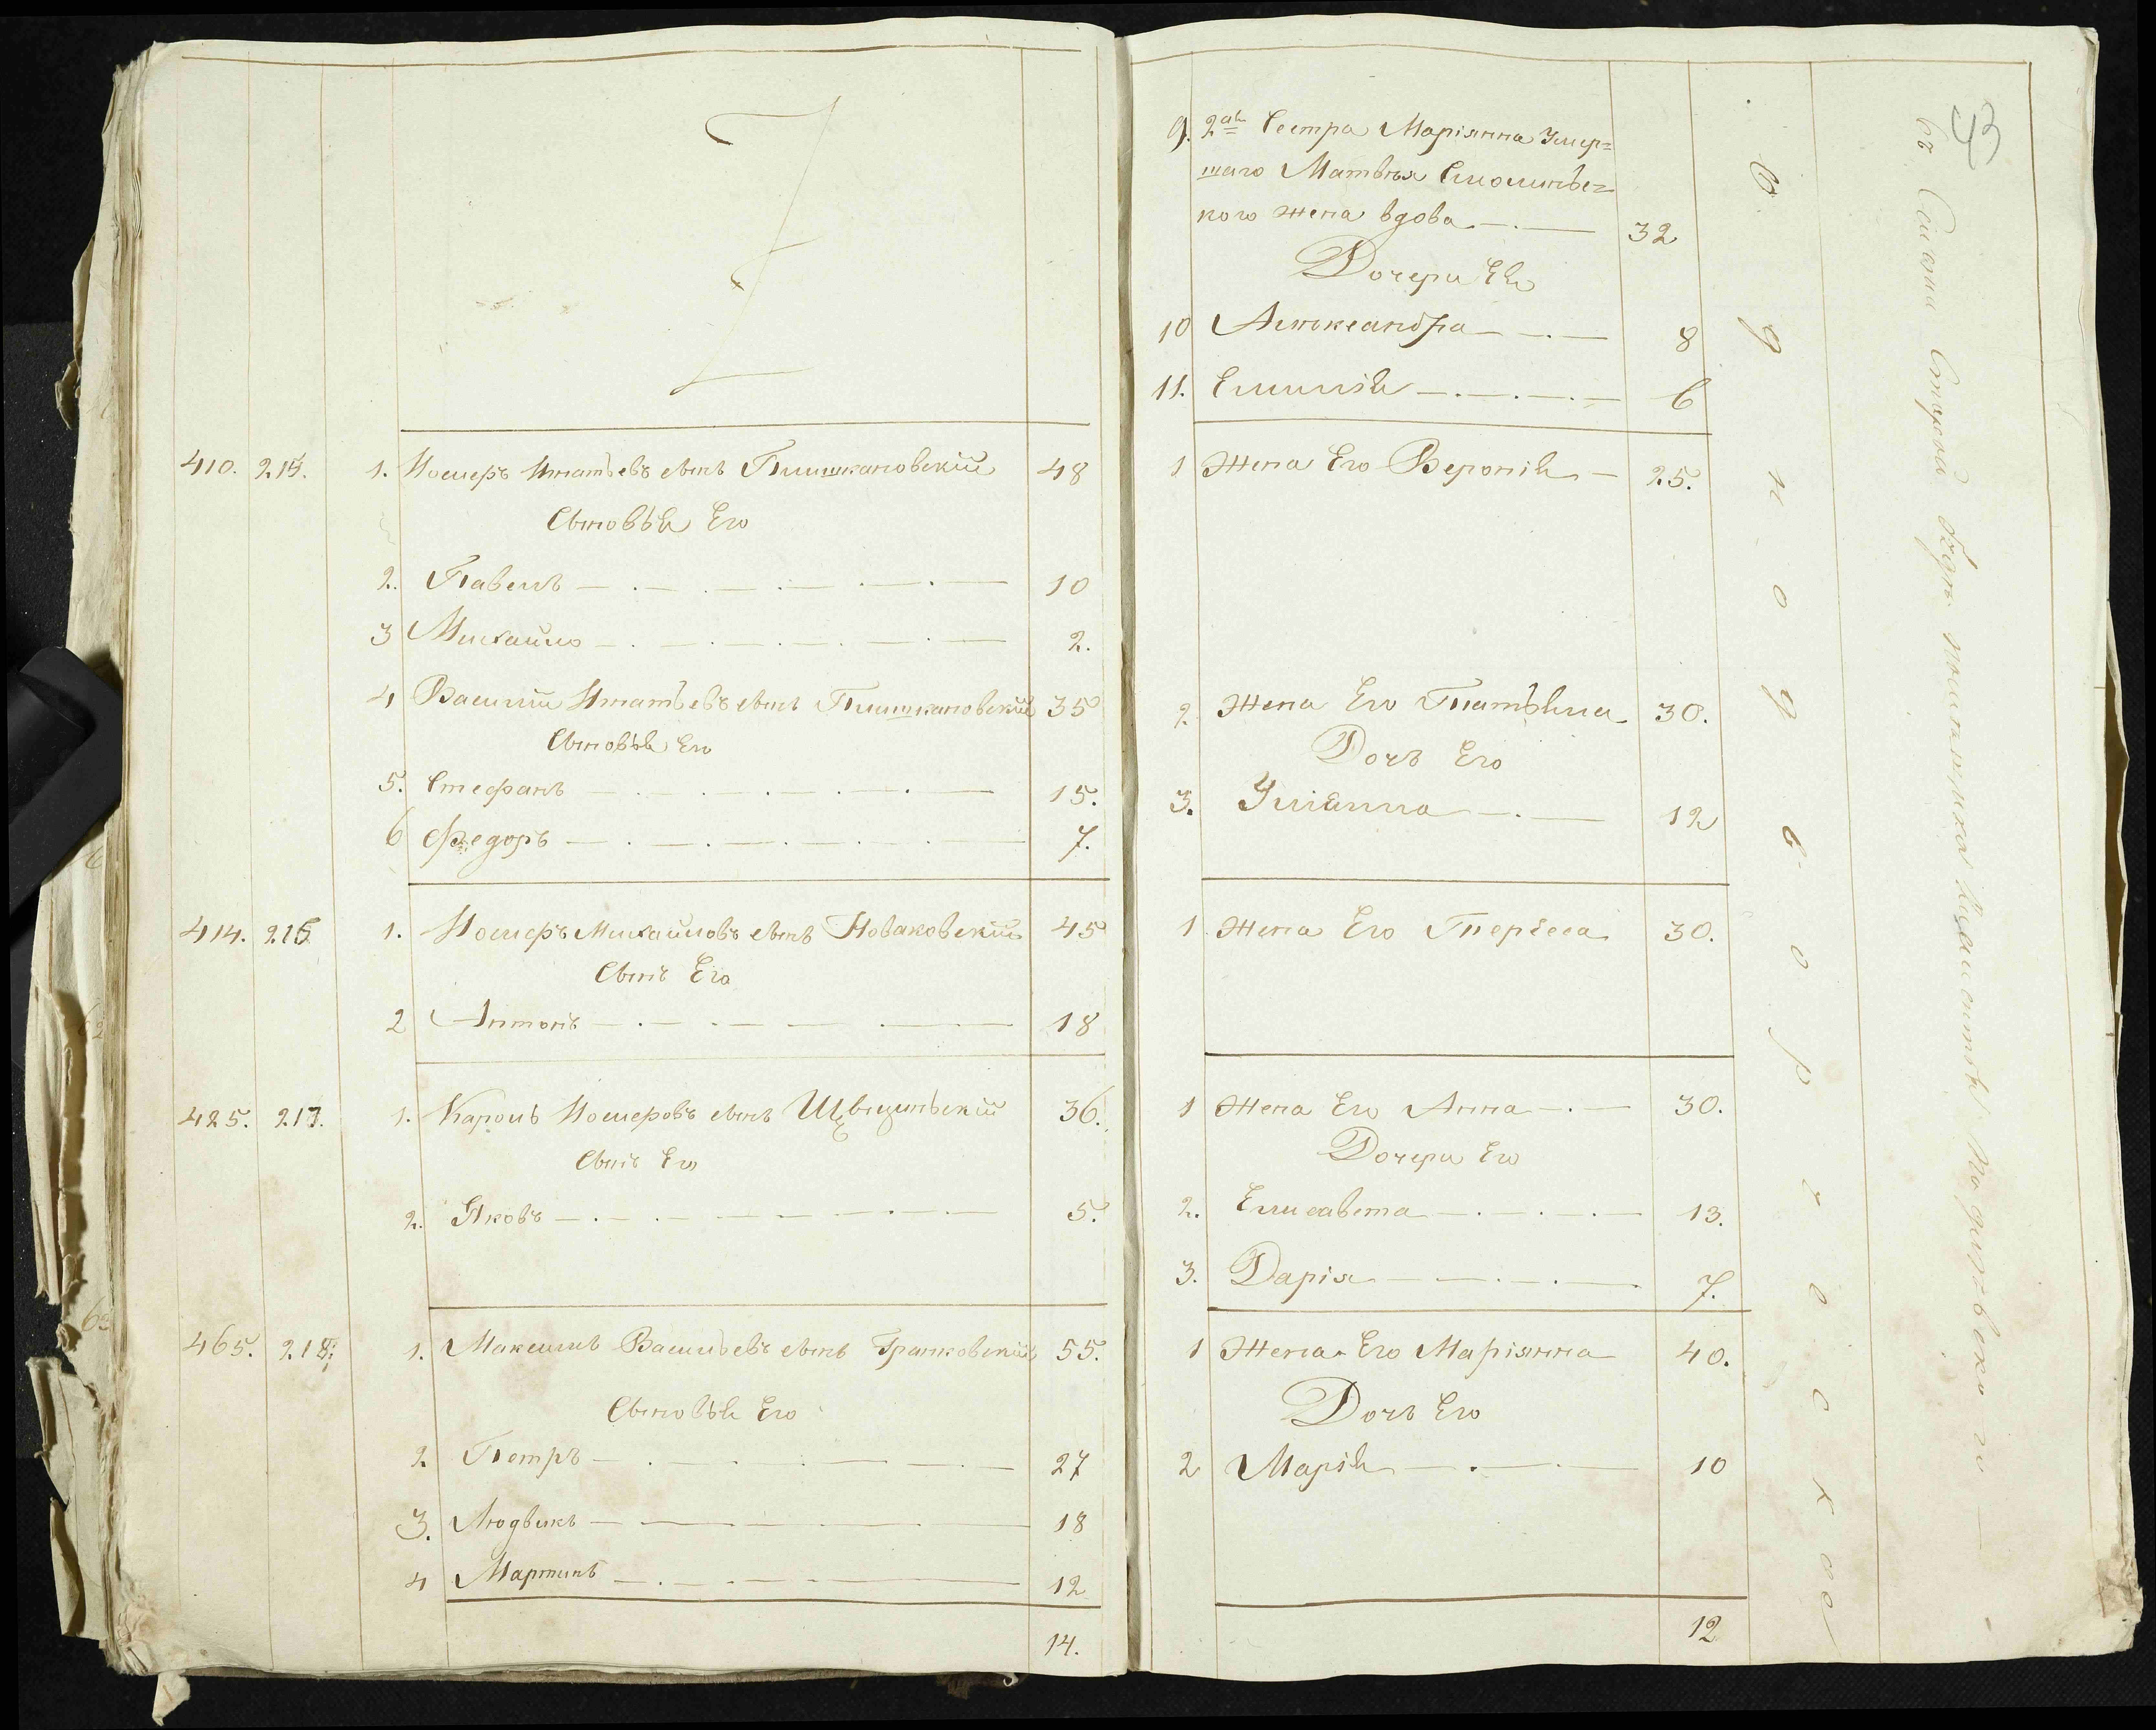 410. 215. 1. Иосифъ Игнатьевъ сынъ Пишкановский 48
Сыновья Его
2. Павелъ 10
3 Михайло 2.
4 Василий Игнатьевъ сынъ Пишкановский 35
Сыновья Его
5. Стефанъ 15.
6 Федоръ 7.
414. 216 1. Иосифъ Михайловъ сынъ Новаковский 45
Сынъ Его
2 Антонъ 18
425. 217. 1. Кароль Иосифовъ сынъ 36.
Сынъ Его
2. Яковъ 5.
465. 218. 1. Максимъ Васильевъ сынъ Гратковский 55.
Сыновья Его
2. Петръ 27
3. Людвикъ 18
4 Мартинъ 12
14.
53
9. 2ая Сестра Маріянна Умер=
шаго Матвѣя
кого жена вдова 32
Дочери Ея
10 Александра 8
11. Емилія 6
1 Жена Его Вероnія 25.
2. Жена Его Татьяна 30.
Дочь Его
3. Улианна 12
1 Жена Его Тересса 30.
1 Жена Его Анна 30.
Дочери Его
2. Елисавета 13.
3. Дарія 7.
1 Жена Его Маріянна 40.
Дочь Его
2 Марія 10
12
Однодворческое
въ Сихъ Старой помещика